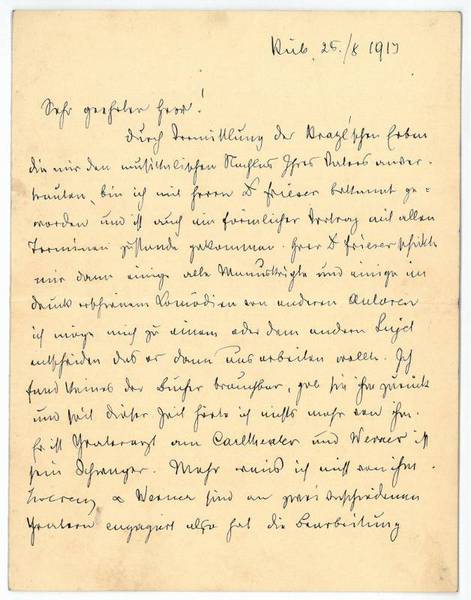 25./8 1917
Sehr geehrter Herr!
Durch Vermittlung der Erben
die mir den musikalischen Nachlas Ihres Vaters anver-
trauten, bin ich mit Herrn Dr Frieser bekannt ge=
worden und ist auch ein förmlicher Vertrag mit allen
Terminen zustande gekommen. Herr Dr Frieser schickte
mir dann einige alte Manuskripte und einige im
Druck erschienene Komödien von anderen Autoren
ich möge mich zu einem oder dem andern Sujet
entscheiden das er dann ausarbeiten wollte. Ich
fand keines der Bücher brauchbar, gab sie ihm zurück
und seit dieser Zeit hörte ich nichts mehr von ihm.
Er ist Theaterarzt am Carltheater und Werner ist
sein Schwager. Mehr weiss ich nicht von ihm.
& Werner sind an zwei verschiedenen
Theatern engagiert also hat die Bearbeitung